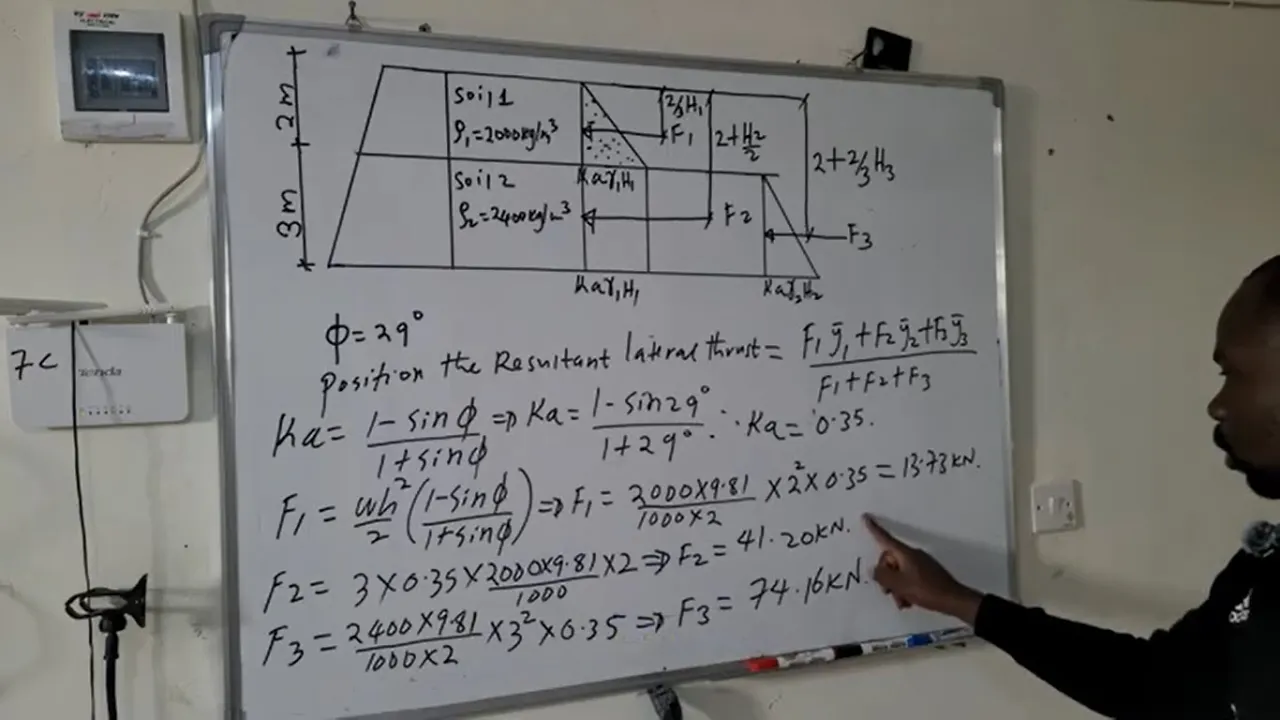 2m
3m
Soil 1
ρ₁=2000kg/m³
2/3H₁
F1
2+H2/2
2+2/3 H3
Kaγ₁H₁
Soil 2
ρ₂=2400kg/m³
F2
F3
Kaγ₁H₁
Kaγ₂H₂
ϕ=29°
Position the Resultant lateral thrust = (F₁ȳ₁+F₂ȳ₂+F₃ȳ₃)/(F₁+F₂+F₃)
Ka= (1-sinϕ)/(1+sinϕ) ⇒ Ka= (1-sin29°)/(1+29°) ∴ Ka= 0.35.
F₁ = wh²/2 ((1-sinϕ)/(1+sinϕ)) ⇒ F₁ = (2000×9.81)/(1000×2) ×2²×0.35 = 13.73KN.
F2= 3×0.35×(2000×9.81)/1000 ×2 ⇒ F2= 41.20KN.
F3= (2400×9.81)/(1000×2) ×3²×0.35 ⇒ F3= 74.16KN.
7C
Tenda
adidas